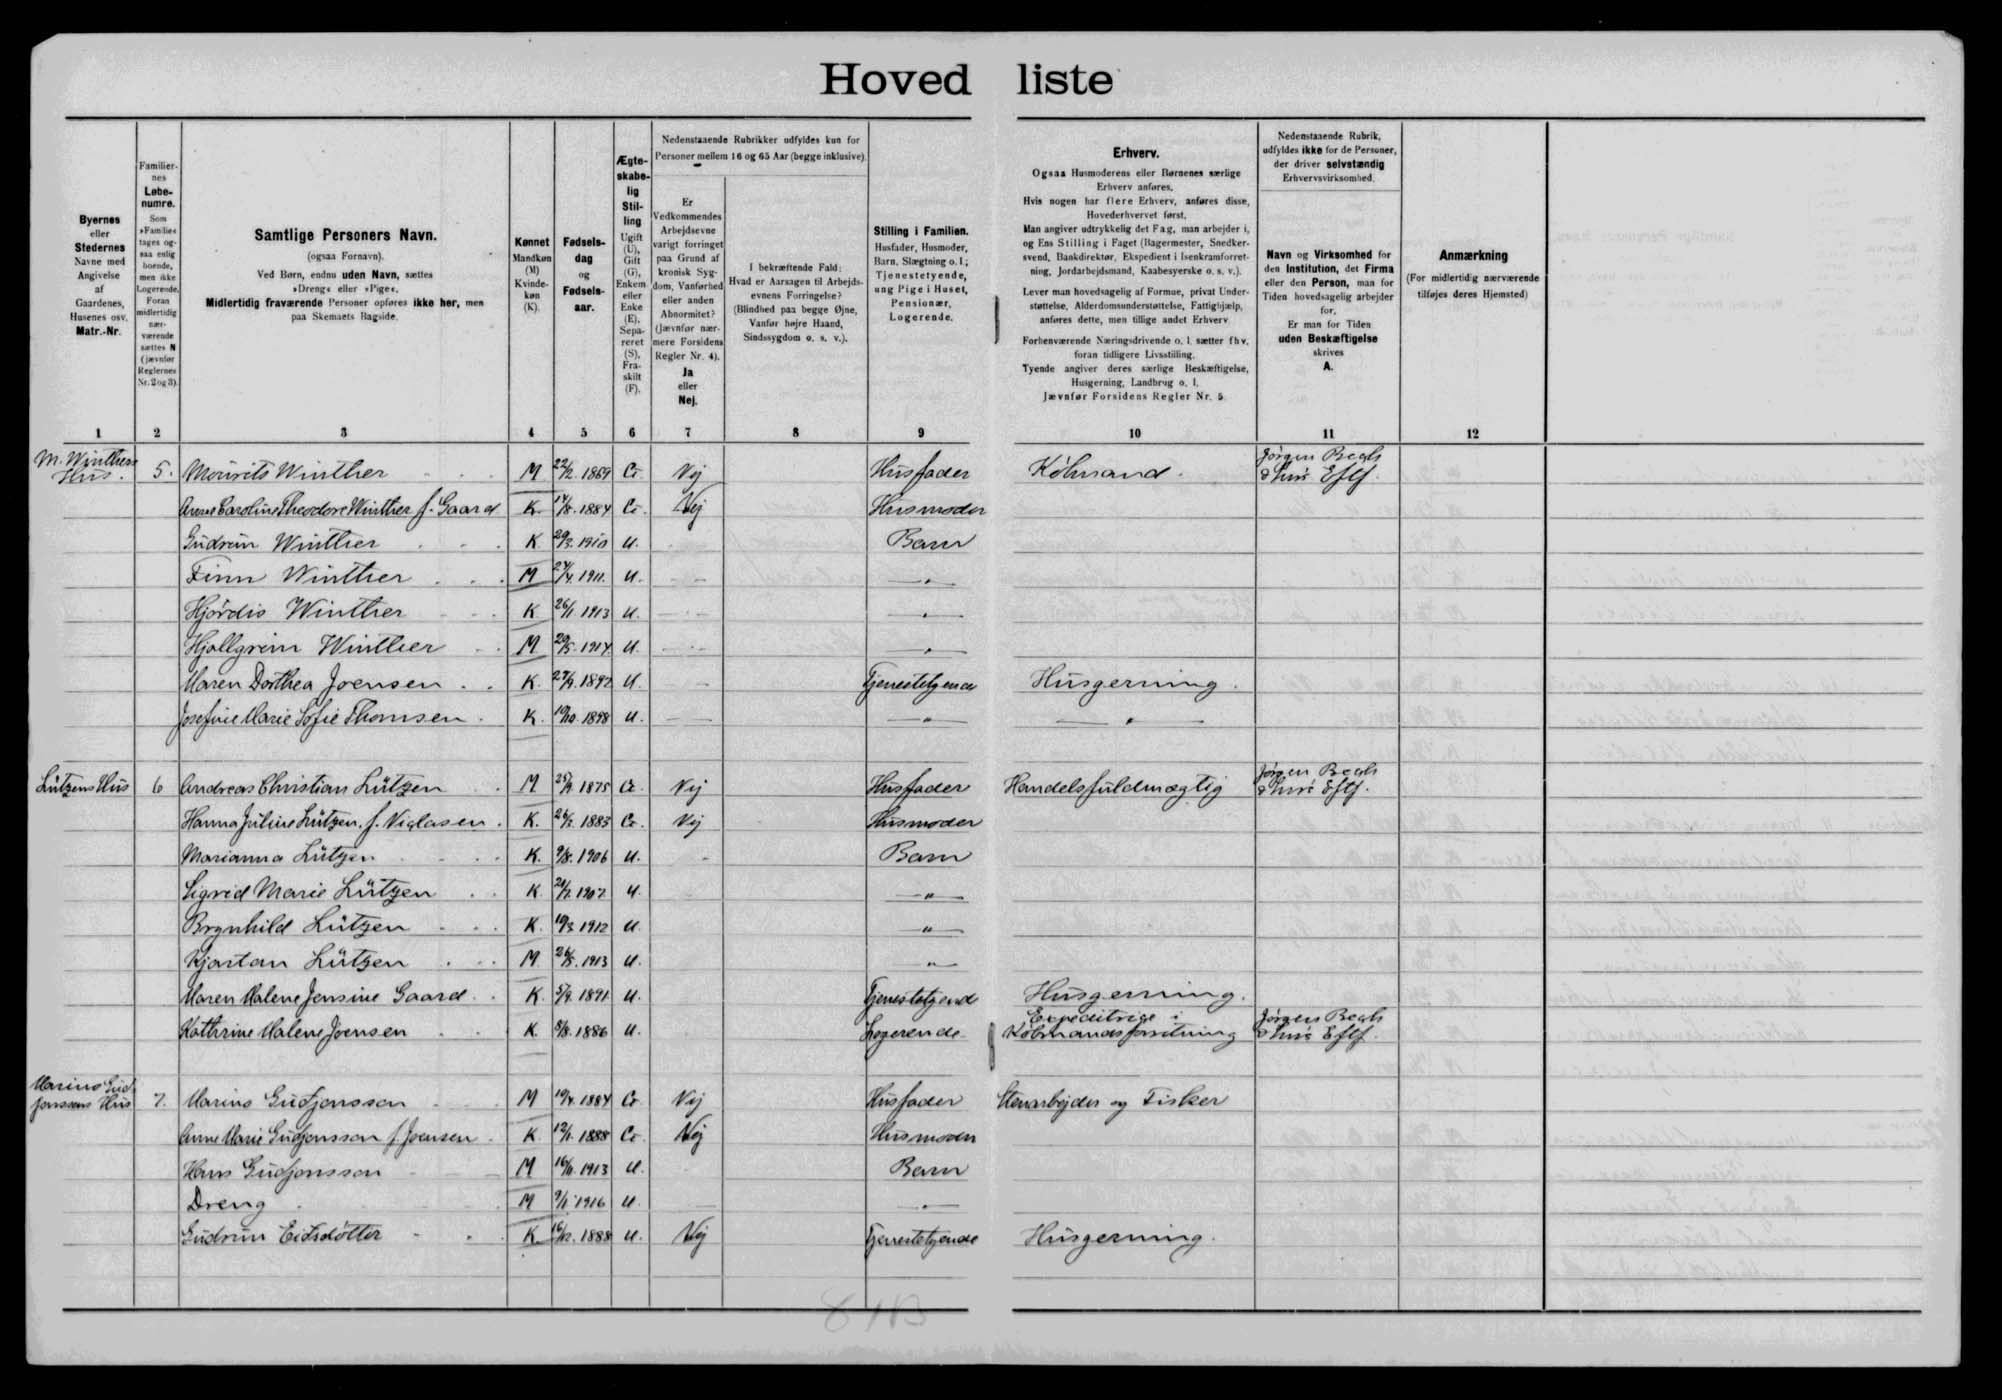 Hoved liste
Byernes
eller
Stedernes
Navne med
Angivelse
af
Gaardenes,
Husenes osv.
Matr.-Nr.
Familier-
nes
Løbe-
numre.
Som
»Familie«
tages og-
saa enlig
boende,
men ikke
Logerende.
Foran
midlertidig
nær-
værende
sættes N
(jævnfør
Reglernes
Nr. 2 og 3).
Samtlige Personers Navn.
(ogsaa Fornavn).
Ved Børn, endnu uden Navn, sættes
»Dreng« eller »Pige«.
Midlertidig fraværende Personer opføres ikke her, men
paa Skemaets Bagside.
Kønnet
Mandkøn
(M)
Kvinde-
køn
(K).
Fødsels-
dag
og
Fødsels-
aar.
Ægte-
skabe-
lig
Stil-
ling
Ugift
(U),
Gift
(G),
Enkem.
eller
Enke
(E),
Sepa-
reret
(S),
Fra-
skilt
(F).
Nedenstaaende Rubrikker udfyldes kun for
Personer mellem 16 og 65 Aar (begge inklusive).
Er
Vedkommendes
Arbejdsevne
varigt forringet
paa Grund af
kronisk Syg-
dom, Vanførhed
eller anden
Abnormitet?
(Jævnfør nær-
mere Forsidens
Regler Nr. 4).
Ja
eller
Nej.
I bekræftende Fald:
Hvad er Aarsagen til Arbejds-
evnens Forringelse?
(Blindhed paa begge Øjne,
Vanfør højre Haand,
Sindssygdom o. s. v.).
Stilling i Familien.
Husfader, Husmoder,
Barn, Slægtning o. l.;
Tjenestetyende,
ung Pige i Huset,
Pensionær,
Logerende.
Erhverv.
Ogsaa Husmoderens eller Børnenes særlige
Erhverv anføres.
Hvis nogen har flere Erhverv, anføres disse,
Hovederhvervet først.
Man angiver udtrykkelig det Fag, man arbejder i,
og Ens Stilling i Faget (Bagermester, Snedker-
svend, Bankdirektør, Ekspedient i Isenkramforret-
ning, Jordarbejdsmand, Kaabesyerske o. s. v.).
Lever man hovedsagelig af Formue, privat Under-
støttelse, Alderdomsunderstøttelse, Fattighjælp,
anføres dette, men tillige andet Erhverv
Forhenværende Næringsdrivende o. l. sætter fhv.
foran tidligere Livsstilling.
Tyende angiver deres særlige Beskæftigelse,
Husgerning, Landbrug o. l.
Jævnfør Forsidens Regler Nr. 5
Nedenstaaende Rubrik,
udfyldes ikke for de Personer,
der driver selvstændig
Erhvervsvirksomhed.
Navn og Virksomhed for
den Institution, det Firma
eller den Person, man for
Tiden hovedsagelig arbejder
for.
Er man for Tiden
uden Beskæftigelse
skrives
A.
Anmærkning
(For midlertidig nærværende
tilføjes deres Hjemsted)
1 2 3 4 5 6 7 8 9 10 11 12
M. Winthers Hus. 5. Mourits Winther M 22/12 1869 G Nej Husfader Købmand. Jörgen Bech & Eftf.
Anne Caroline Theodore Winther f. Gaard K. 14/8. 1884 G. Nej Husmoder
Gudrun Winther K. 29/3. 1910 U. Barn
Finn Winther M 24/4. 1911. U. "
Hjördis Winther K 26/1 1913 U. "
Hjallgrim Winther M 20/5. 1914. U. "
Maren Dorthea Joensen K. 27/9. 1892 U. Tjenestetyende Husgerning.
Josefine Marie Sofie Thomsen K. 19/10. 1898 U. " "
Lützens Hus 6 Andreas Christian Lützen M 25/9. 1875 G. Nej Husfader Handelsfuldmægtig Jörgen Bech & Eftf.
Hanna Juline Lützen, f. Niclasen K. 26/3. 1883 G. Nej Husmoder
Marianna Lützen K. 9/8. 1906 U. Barn
Sigrid Marie Lützen K. 1907. U. "
Brynhild Lützen K. 19/3 1912 U. "
Kjartan Lützen M 26/5. 1913 U. "
Maren Malene Jensine Gaard K. 5/9. 1891. U. Tjenestetyende Husgerning.
Kathrine Malene Joensen K. 8/8. 1886 U. Logerende Expeditrice i Købmandsforretning Jörgen Bech & Eftf.
Marius Gudjonssons Hus 7. Marius Gudjonsson M 19/4. 1884 G Nej Husfader Stenarbejder og Fisker
Anne Marie Gudjonsson f. Joensen K 12/1. 1888 G. Nej Husmoder
Hans Gudjonsson M 16/11. 1913 U. Barn
Dreng M 9/1 1916 U. "
Gudrun Eidsdötter K. 16/12. 1888 U. Nej Tjenestetyende Husgerning.